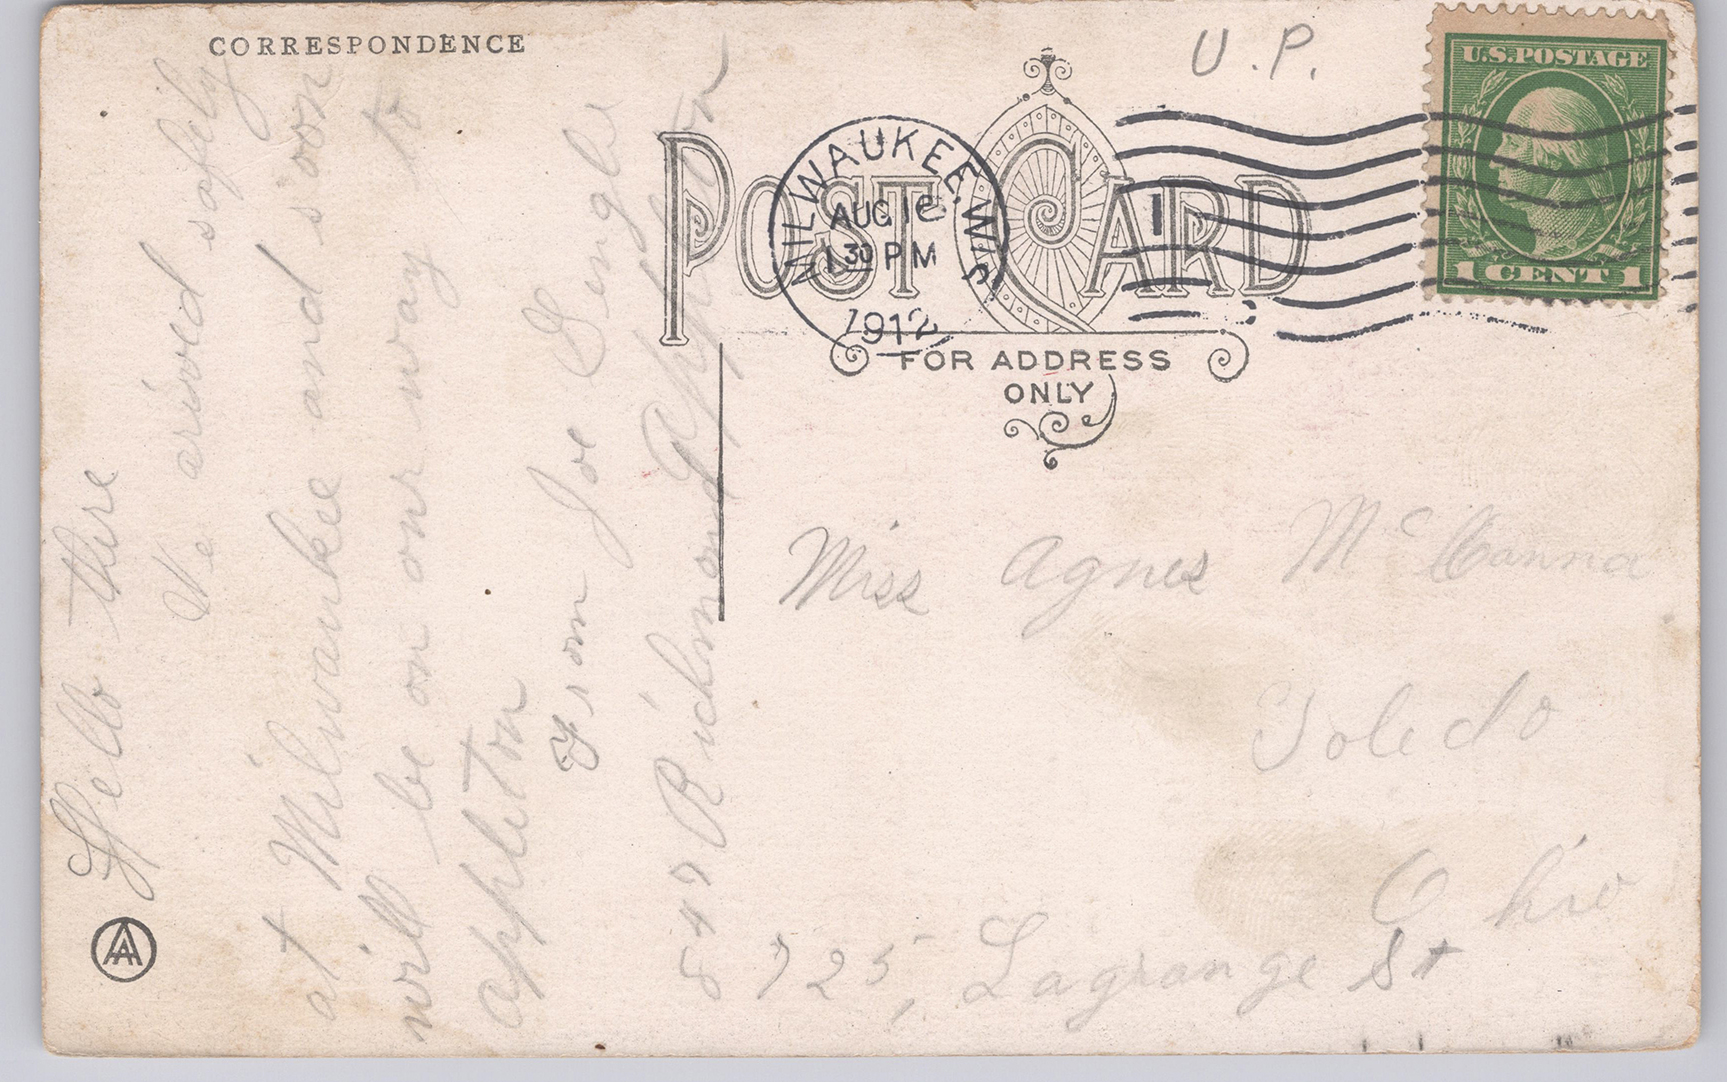 CORRESPONDENCE
Hello there
We arivved safely
at Milwaukee and soon
will be on our way to
appleton
From Joe Gengle
847 Richmond Appleton
U.P.
U.S. POSTAGE
1 CENT 1
MILWAUKEE, WIS.
AUG 16
1 30 PM
1912
POST CARD
FOR ADDRESS
ONLY
Miss Agnes McCanna
Toledo
Ohio
725, Lagrange St